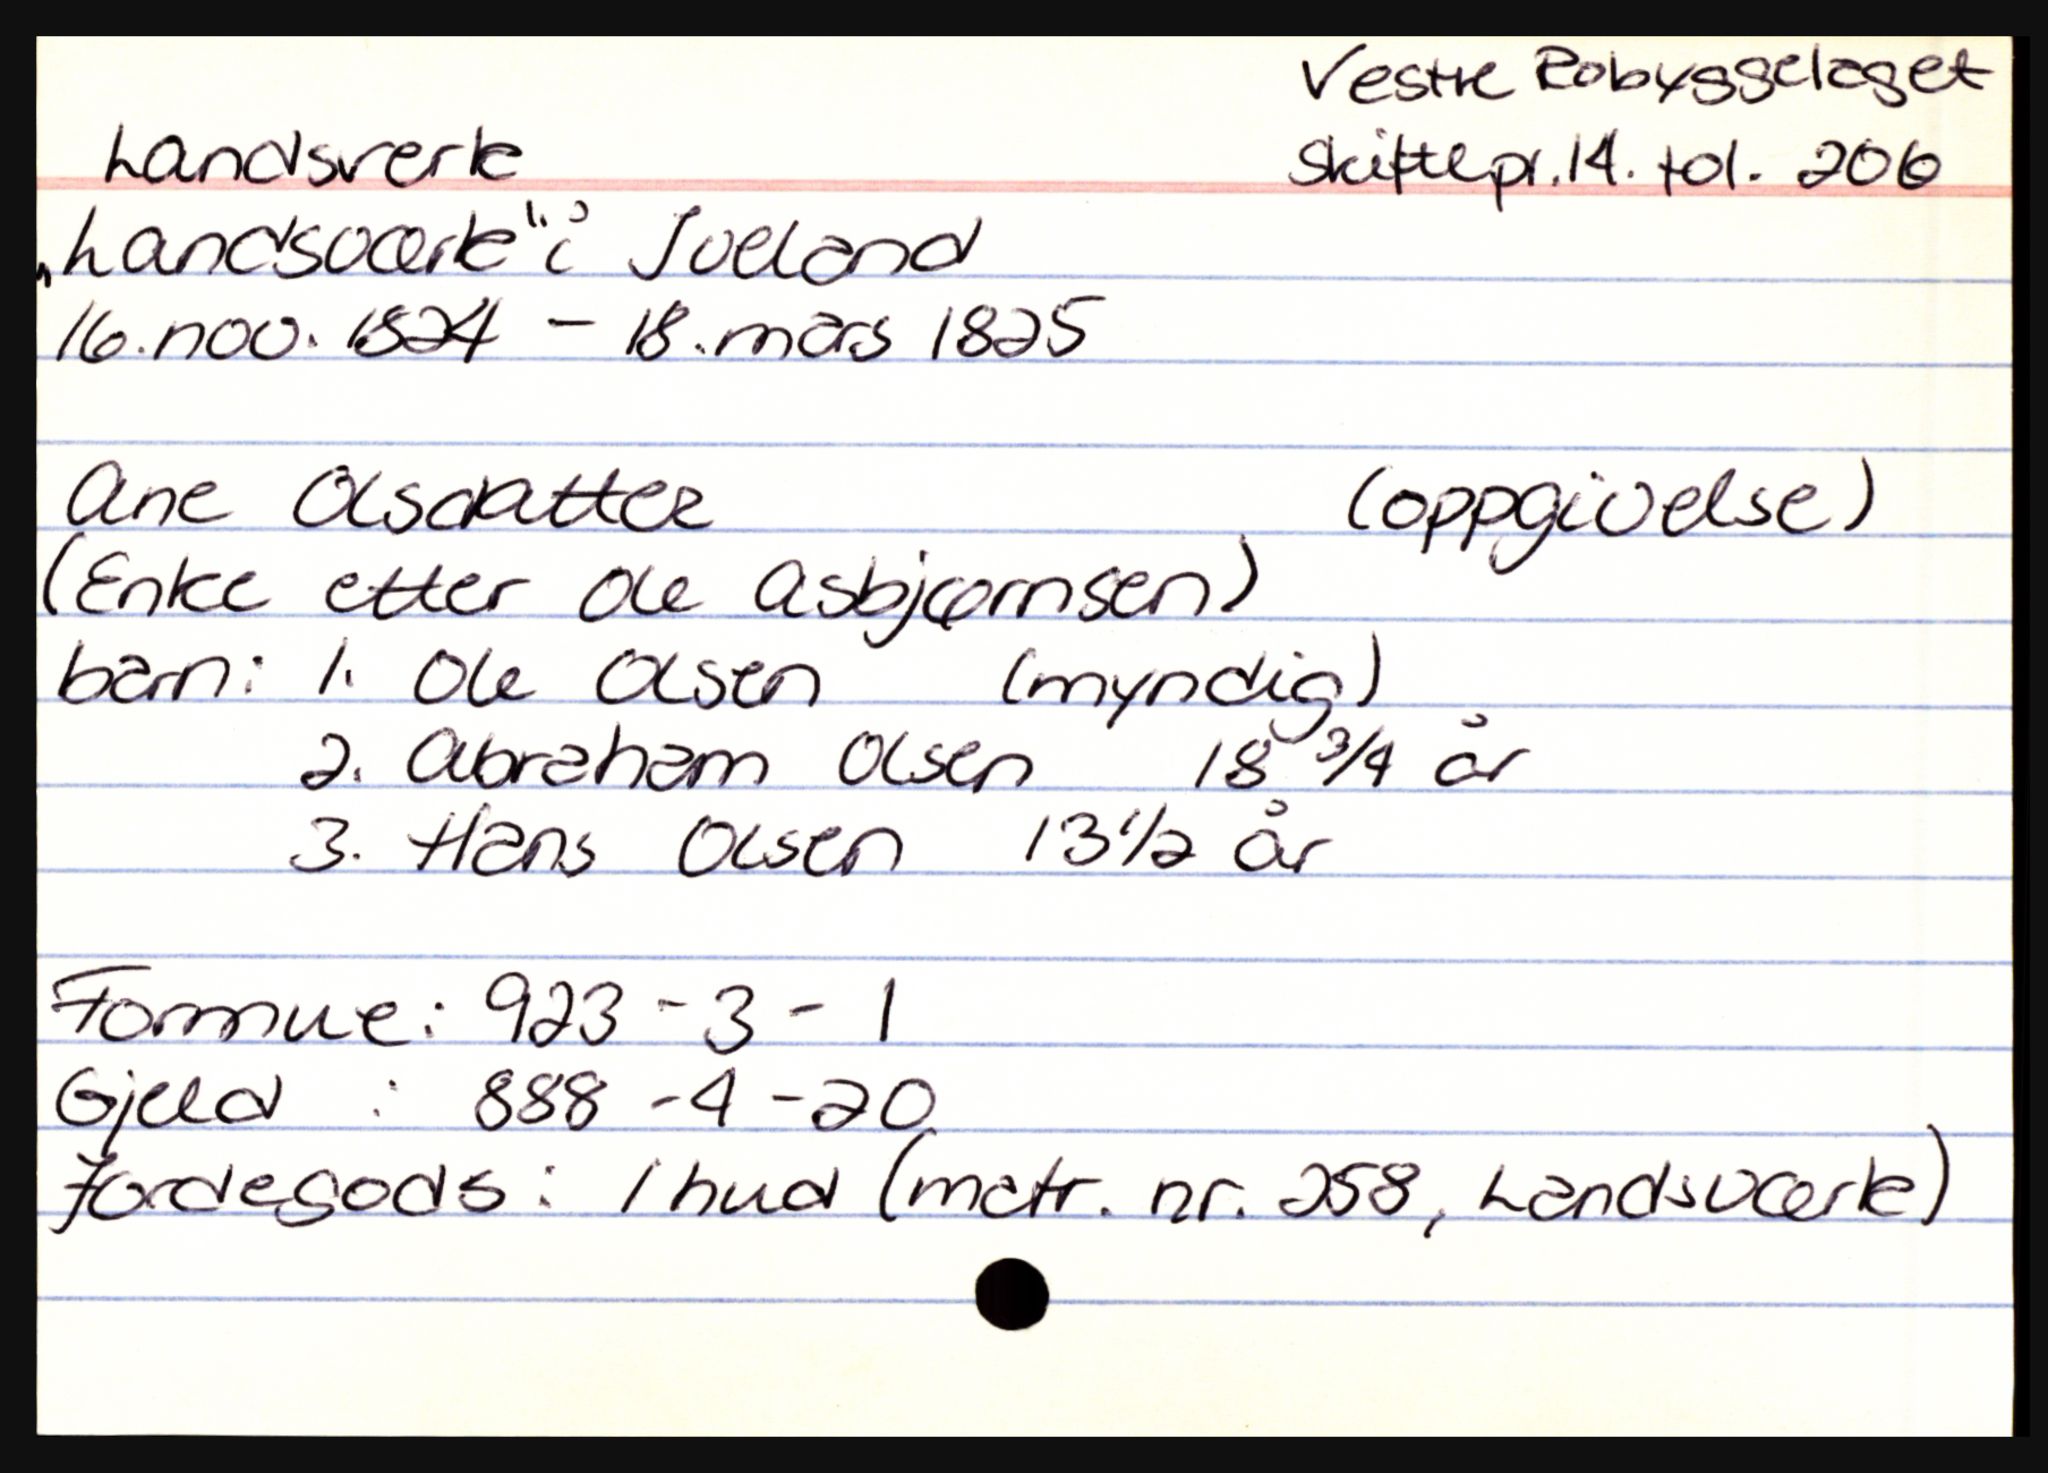 Vestre Robyggelaget
Landsverk
Skiftepr. 14. fol. 206
"Landsværk" i Iveland
16. nov. 1824 - 18. mars 1825
Ane Olsdatter (oppgivelse)
(Enke etter Ole Asbjørnsen)
barn: 1. Ole Olsen (myndig)
2. Abraham Olsen 18 3/4 år
3. Hans Olsen 13 1/2 år
Formue: 923 - 3 - 1
Gjeld : 888 - 4 - 20
Jordegods: 1 hud (matr. nr. 258, Landsværk)